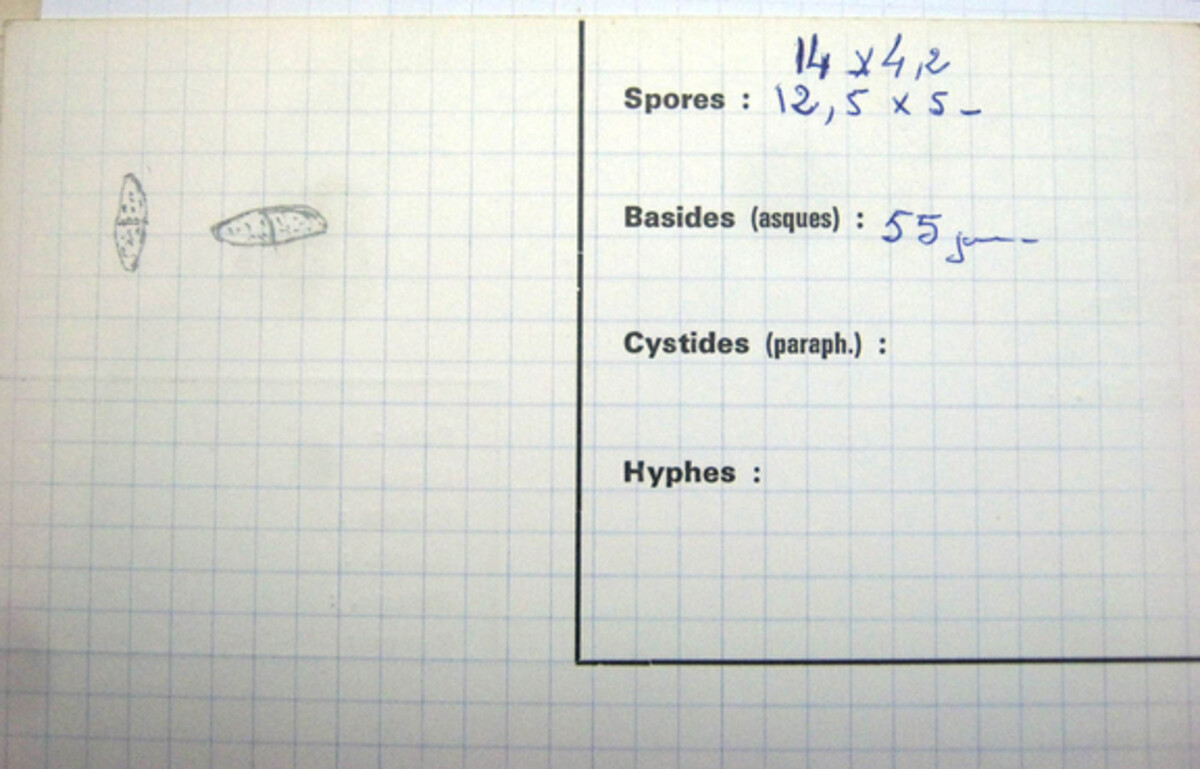 14 x 4,2
Spores : 12,5 x 5 -
Basides (asques) : 55
Cystides (paraph.) :
Hyphes :